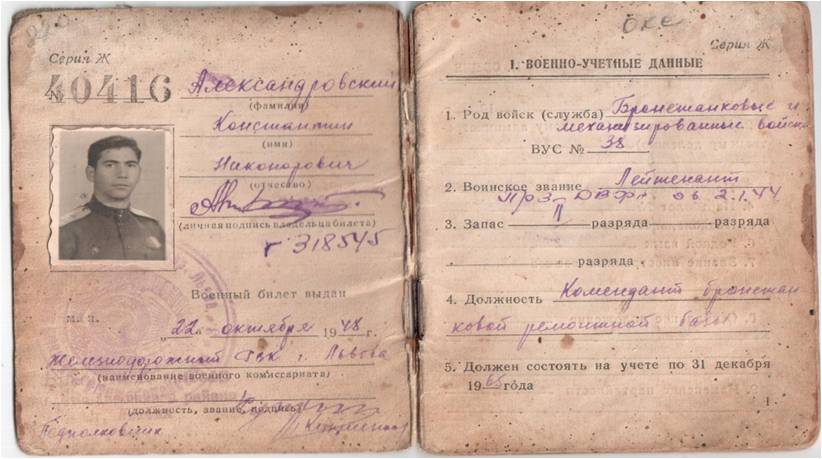 Серия Ж
40416
Александровский
(фамилия)
Константин
(имя)
Никонорович
(отчество)
(личная подпись владельца билета)
г 318545
Военный билет выдан
М. П.
„22“ октября 1948 г.
Железнодорожный ГВК г. Львова
(наименование военного комиссариата)
(должность, звание, подпись)
Подполковник
Серия Ж
I. ВОЕННО-УЧЕТНЫЕ ДАННЫЕ
1. Род войск (служба) Бронетанковые и
механизированные войск
ВУС № 38
2. Воинское звание Лейтенант
Пр3- ДВФ 06 2.1.44
3. Запас II разряда разряда
разряда
4. Должность Комендант бронетан
ковой ремонтной базы
5. Должен состоять на учете по 31 декабря
1965 года
1